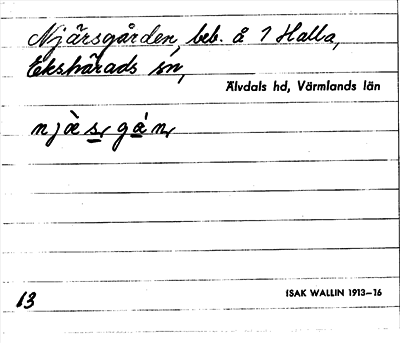 Njärsgården, beb. å 7 Halla,
Ekshärads sn,
Älvdals hd, Värmlands län
njὰs, gάn,
13
ISAK WALLIN 1913–16